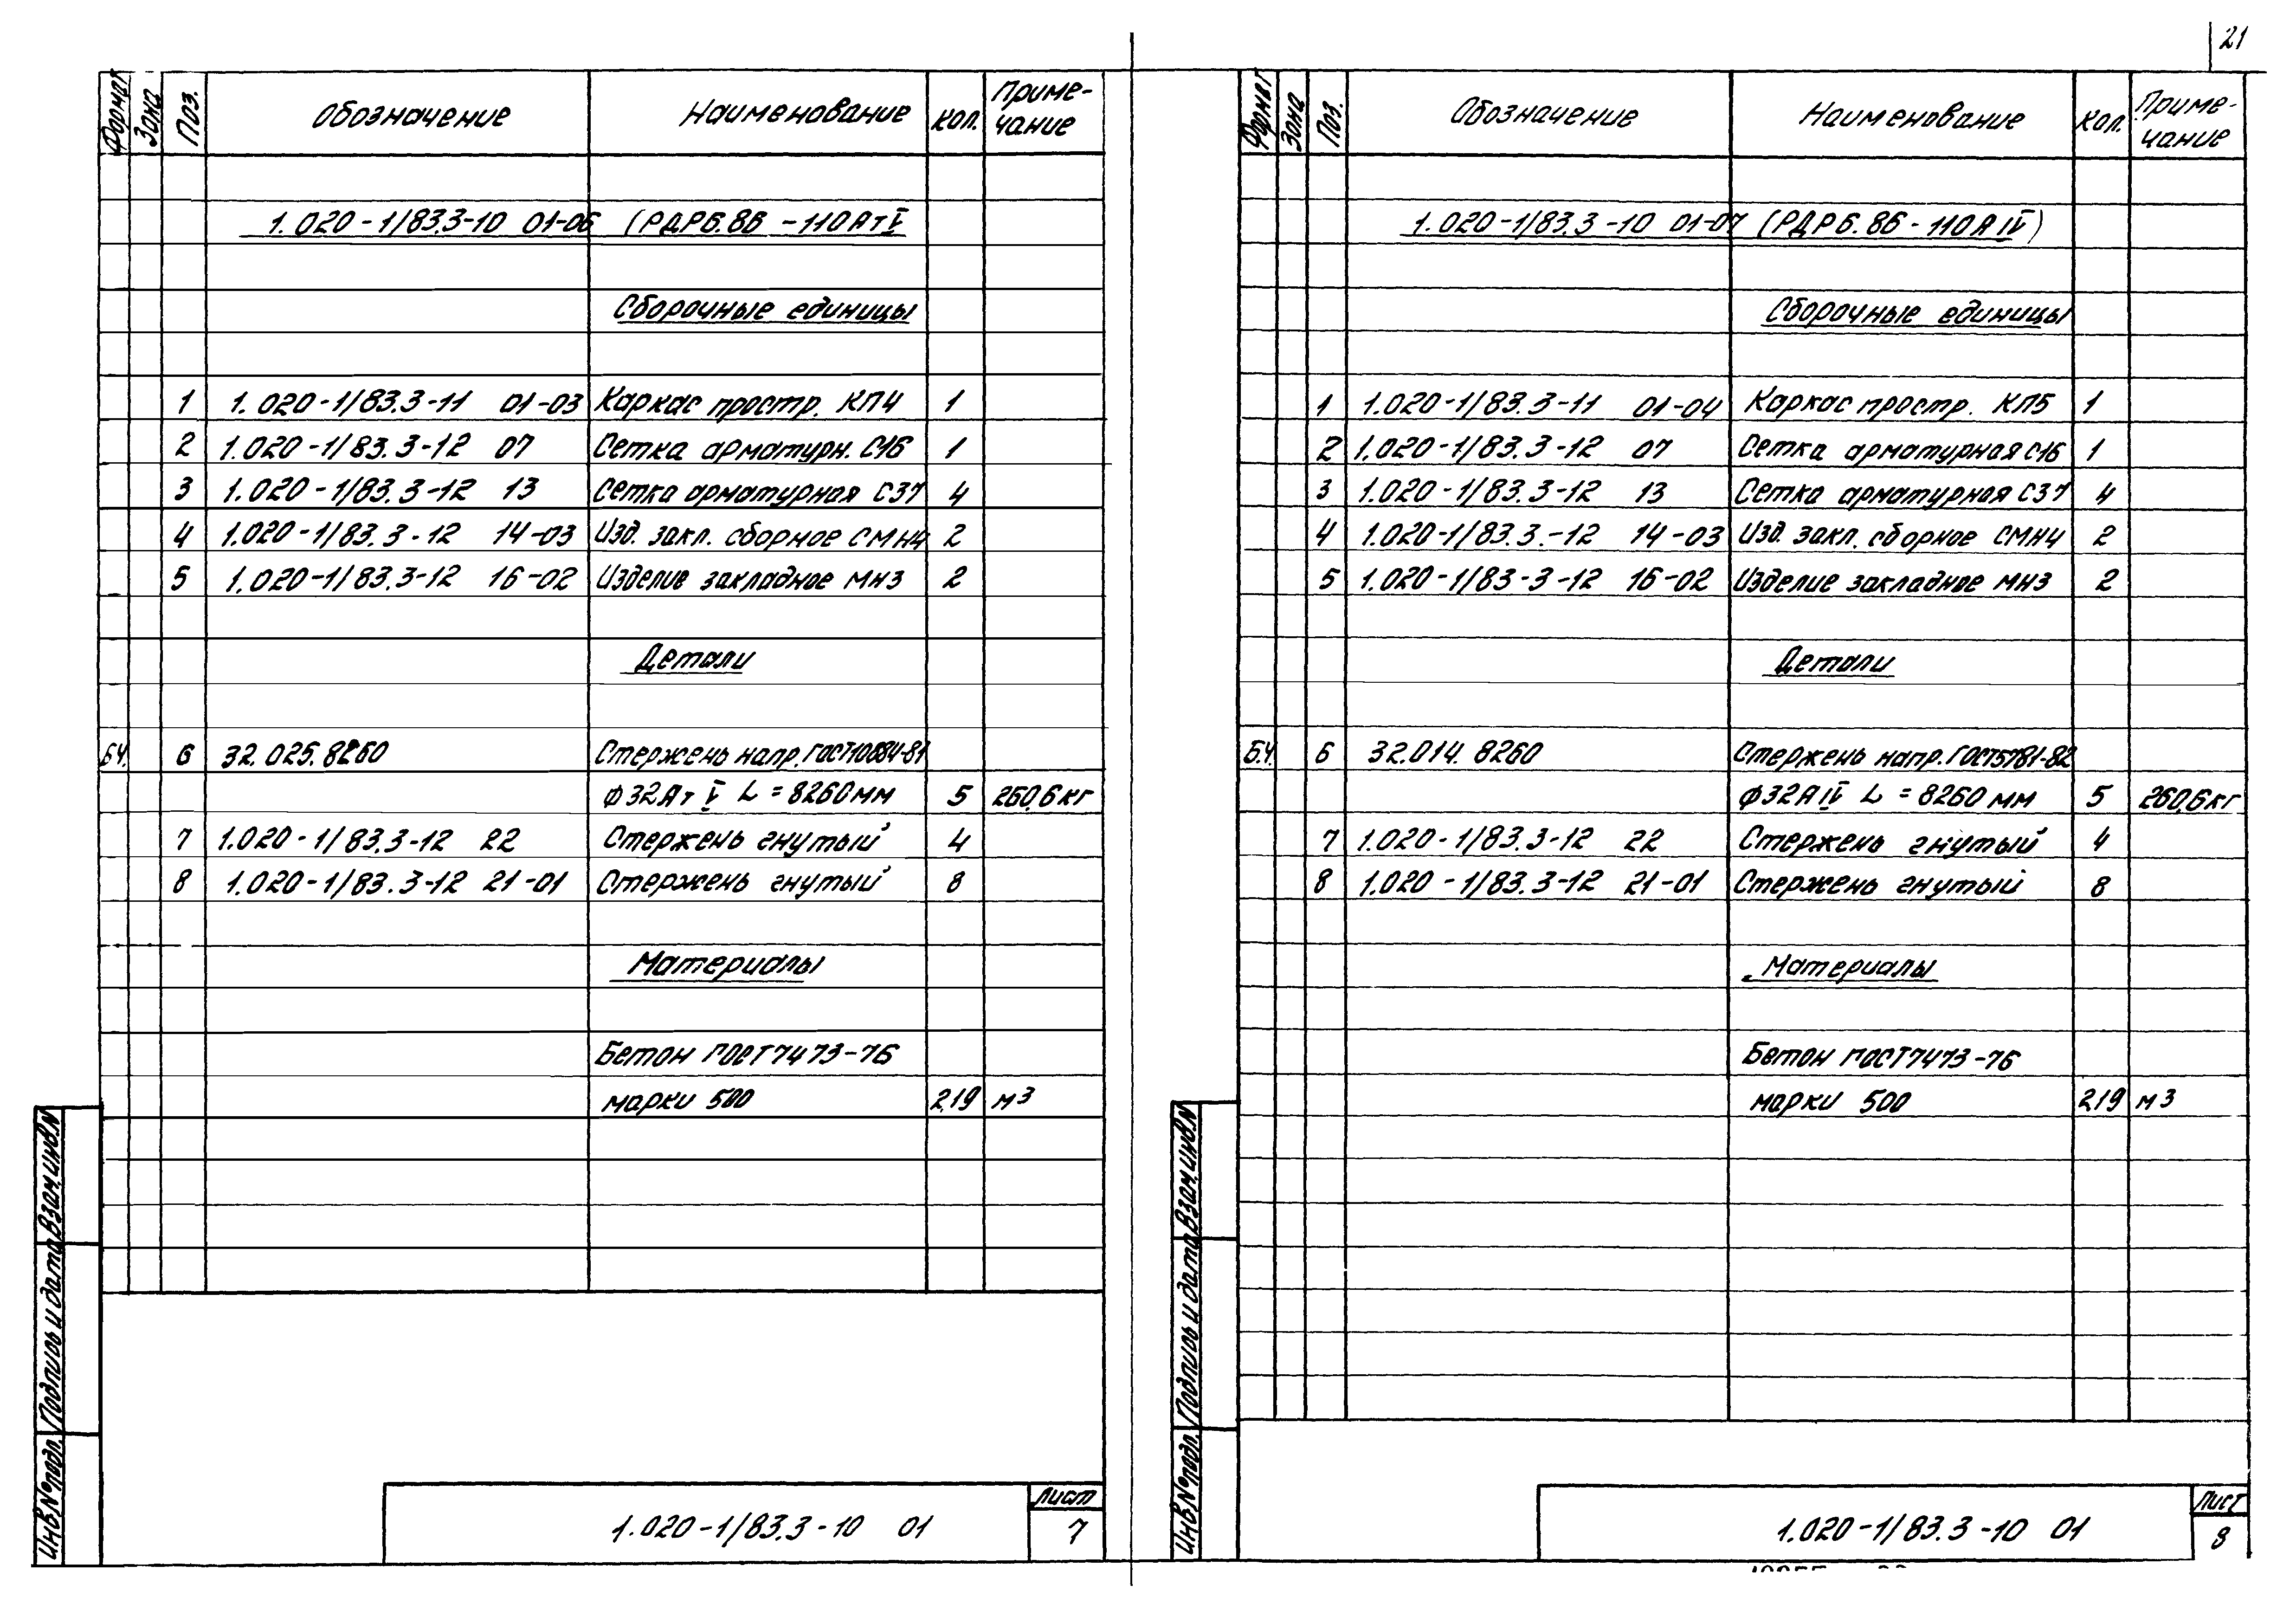 21
Формат Зона Поз. Обозначение Наименование Кол. Приме-
чание
1.020-1/83.3-10 01-06 (РДР6.86-110АтV
Сборочные единицы
1 1.020-1/83.3-11 01-03 Каркас простр. КП4 1
2 1.020-1/83.3-12 07 Сетка арматурн. С16 1
3 1.020-1/83.3-12 13 Сетка арматурная С37 4
4 1.020-1/83.3-12 14-03 Изд. закл. сборное СМН4 2
5 1.020-1/83.3-12 16-02 Изделие закладное МН3 2
Детали
БЧ. 6 32.025.8260 Стержень напр. ГОСТ10884-81
ф32АтV L=8260мм 5 260,6кг
7 1.020-1/83.3-12 22 Стержень гнутый 4
8 1.020-1/83.3-12 21-01 Стержень гнутый 8
Материалы
Бетон ГОСТ7473-76
марки 500 2,19 м3
Инв.№подл. Подпись и дата Взам.инв.№
1.020-1/83.3-10 01
Лист
7
Формат Зона Поз. Обозначение Наименование Кол. Приме-
чание
1.020-1/83.3-10 01-07 (РДР6.86-110АIV)
Сборочные единицы
1 1.020-1/83.3-11 01-04 Каркас простр. КП5 1
2 1.020-1/83.3-12 07 Сетка арматурная С16 1
3 1.020-1/83.3-12 13 Сетка арматурная С37 4
4 1.020-1/83.3.-12 14-03 Изд. закл. сборное СМН4 2
5 1.020-1/83-3-12 16-02 Изделие закладное МН3 2
Детали
БЧ. 6 32.014.8260 Стержень напр. ГОСТ5781-82
ф32АIV L=8260мм 5 260,6кг
7 1.020-1/83.3-12 22 Стержень гнутый 4
8 1.020-1/83.3-12 21-01 Стержень гнутый 8
Материалы
Бетон ГОСТ7473-76
марки 500 2,19 м3
Инв.№подл. Подпись и дата Взам.инв.№
1.020-1/83.3-10 01
Лист
8